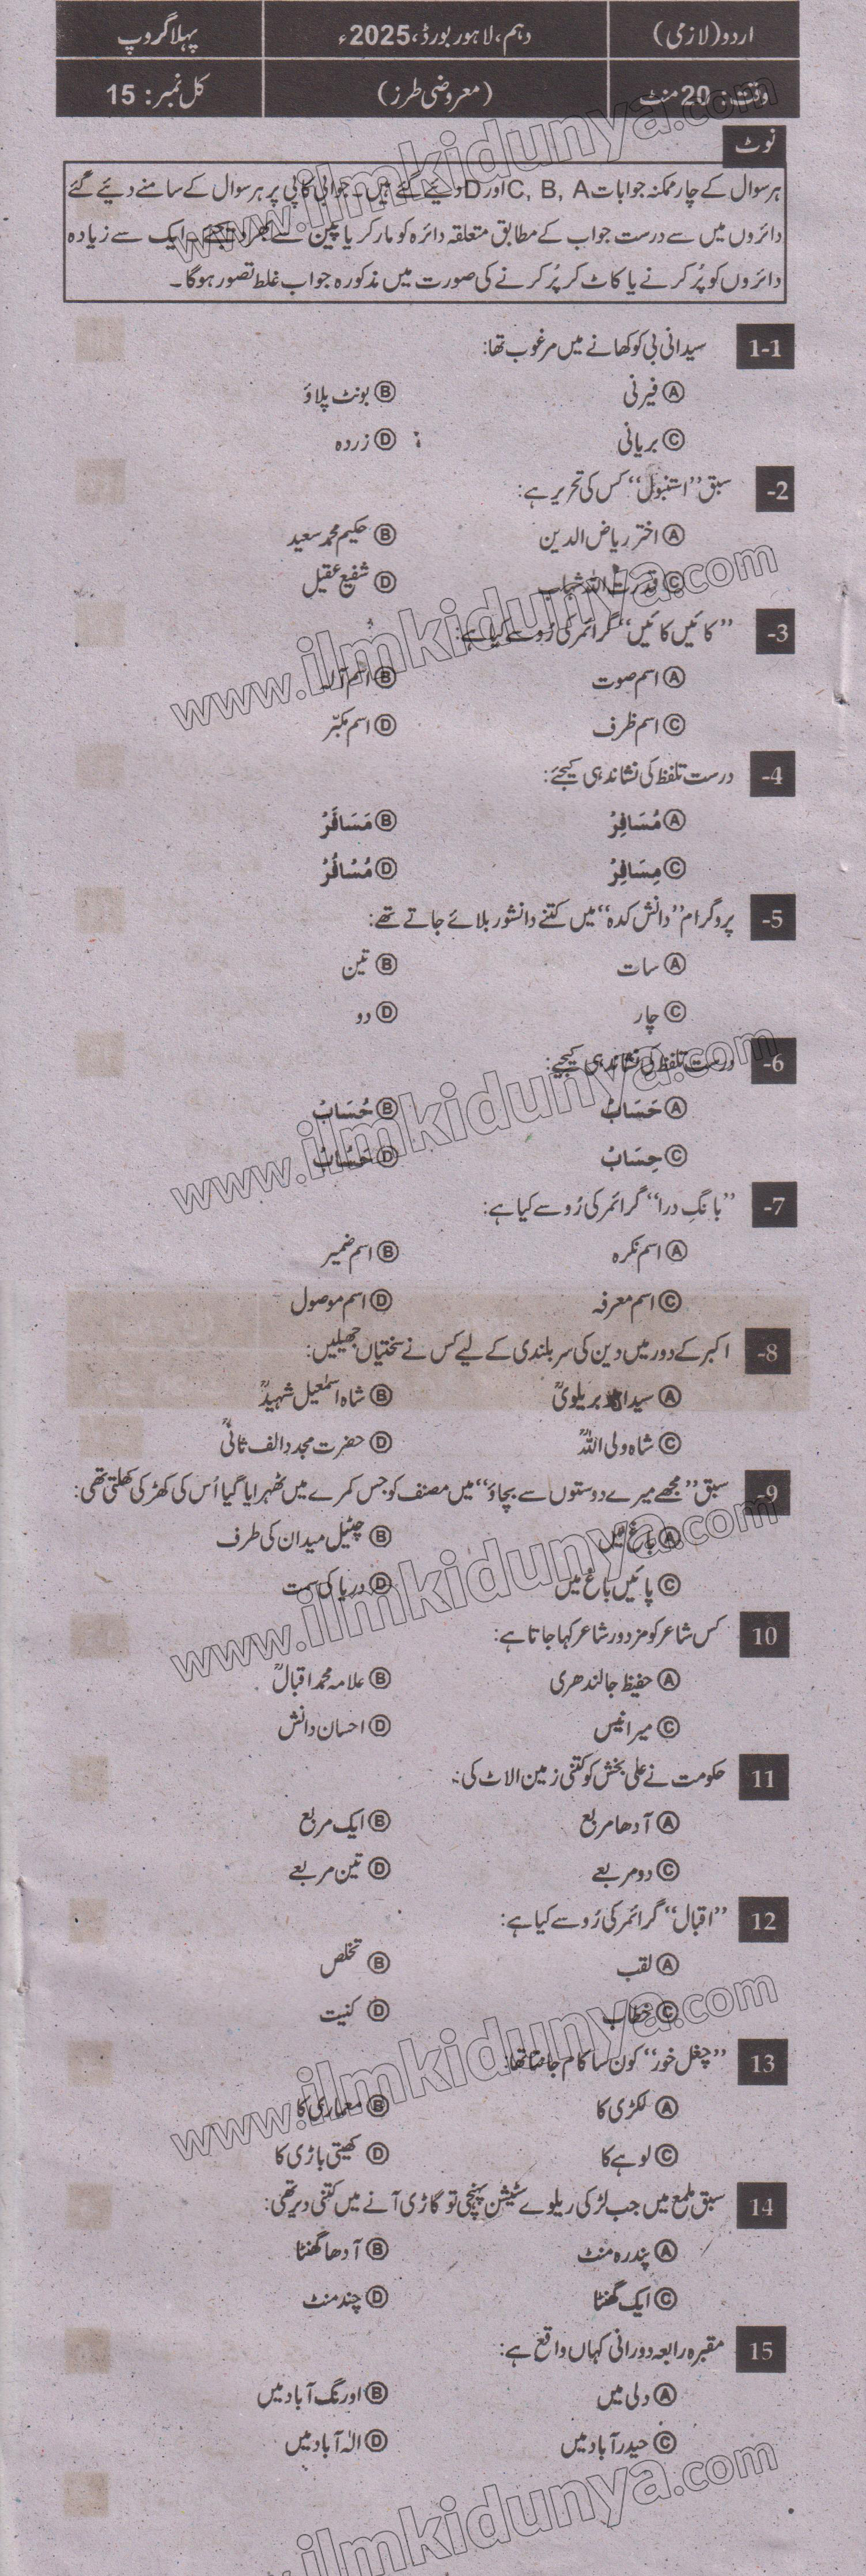 اردو (لازمی) دہم، لاہور بورڈ، 2025ء پہلا گروپ
وقت: 20 منٹ (معروضی طرز) کل نمبر: 15
نوٹ
ہر سوال کے چار ممکنہ جوابات C, B, A اور D دیئے گئے ہیں۔ جوابی کاپی پر ہر سوال کے سامنے دیئے گئے
دائروں میں سے درست جواب کے مطابق متعلقہ دائرہ کو مارکر یا پین سے بھر دیجئے۔ ایک سے زیادہ
دائروں کو پُر کرنے یا کاٹ کر پُر کرنے کی صورت میں مذکورہ جواب غلط تصور ہوگا۔
1-1 سیدانی بی کو کھانے میں مرغوب تھا:
Ⓐ فیرنی Ⓑ بونٹ پلاؤ
Ⓒ بریانی Ⓓ زردہ
-2 سبق ”استنبول“ کس کی تحریر ہے:
Ⓐ اختر ریاض الدین Ⓑ حکیم محمد سعید
Ⓒ قدرت اللہ شہاب Ⓓ شفیع عقیل
-3 ”کائیں کائیں“ گرائمر کی رُو سے کیا ہے:
Ⓐ اسم صوت Ⓑ اسم آلہ
Ⓒ اسم ظرف Ⓓ اسم مکبّر
-4 درست تلفظ کی نشاندہی کیجئے:
Ⓐ مُسَافِرْ Ⓑ مَسَافَرْ
Ⓒ مِسَافِرْ Ⓓ مُسْافُرْ
-5 پروگرام ”دانش کدہ“ میں کتنے دانشور بلائے جاتے تھے:
Ⓐ سات Ⓑ تین
Ⓒ چار Ⓓ دو
-6 درست تلفظ کی نشاندہی کیجیے:
Ⓐ حَسَابْ Ⓑ حُسَابْ
Ⓒ حِسَابْ Ⓓ حَسْابْ
-7 ”بانگِ درا“ گرائمر کی رُو سے کیا ہے:
Ⓐ اسم نکرہ Ⓑ اسم ضمیر
Ⓒ اسم معرفہ Ⓓ اسم موصول
-8 اکبر کے دور میں دین کی سربلندی کے لیے کس نے سختیاں جھیلیں:
Ⓐ سید احمد بریلویؒ Ⓑ شاہ اسمٰعیل شہیدؒ
Ⓒ شاہ ولی اللہؒ Ⓓ حضرت مجدد الف ثانیؒ
-9 سبق ”مجھے میرے دوستوں سے بچاؤ“ میں مصنف کو جس کمرے میں ٹھہرایا گیا اُس کی کھڑکی کھلتی تھی:
Ⓐ باغ میں Ⓑ چٹیل میدان کی طرف
Ⓒ پائیں باغ میں Ⓓ دریا کی سمت
10 کس شاعر کو مزدور شاعر کہا جاتا ہے:
Ⓐ حفیظ جالندھری Ⓑ علامہ محمد اقبالؒ
Ⓒ میر انیس Ⓓ احسان دانش
11 حکومت نے علی بخش کو کتنی زمین الاٹ کی:
Ⓐ آدھا مربع Ⓑ ایک مربع
Ⓒ دو مربعے Ⓓ تین مربعے
12 ”اقبال“ گرائمر کی رُو سے کیا ہے:
Ⓐ لقب Ⓑ تخلص
Ⓒ خطاب Ⓓ کنیت
13 ”چغل خور“ کون سا کام جانتا تھا:
Ⓐ لکڑی کا Ⓑ معماری کا
Ⓒ لوہے کا Ⓓ کھیتی باڑی کا
14 سبق ملمع میں جب لڑکی ریلوے سٹیشن پہنچی تو گاڑی آنے میں کتنی دیر تھی:
Ⓐ پندرہ منٹ Ⓑ آدھا گھنٹا
Ⓒ ایک گھنٹا Ⓓ چند منٹ
15 مقبرہ رابعہ دورانی کہاں واقع ہے:
Ⓐ دلی میں Ⓑ اورنگ آباد میں
Ⓒ حیدر آباد میں Ⓓ الٰہ آباد میں
www.ilmkidunya.com
www.ilmkidunya.com
www.ilmkidunya.com
www.ilmkidunya.com
www.ilmkidunya.com
www.ilmkidunya.com